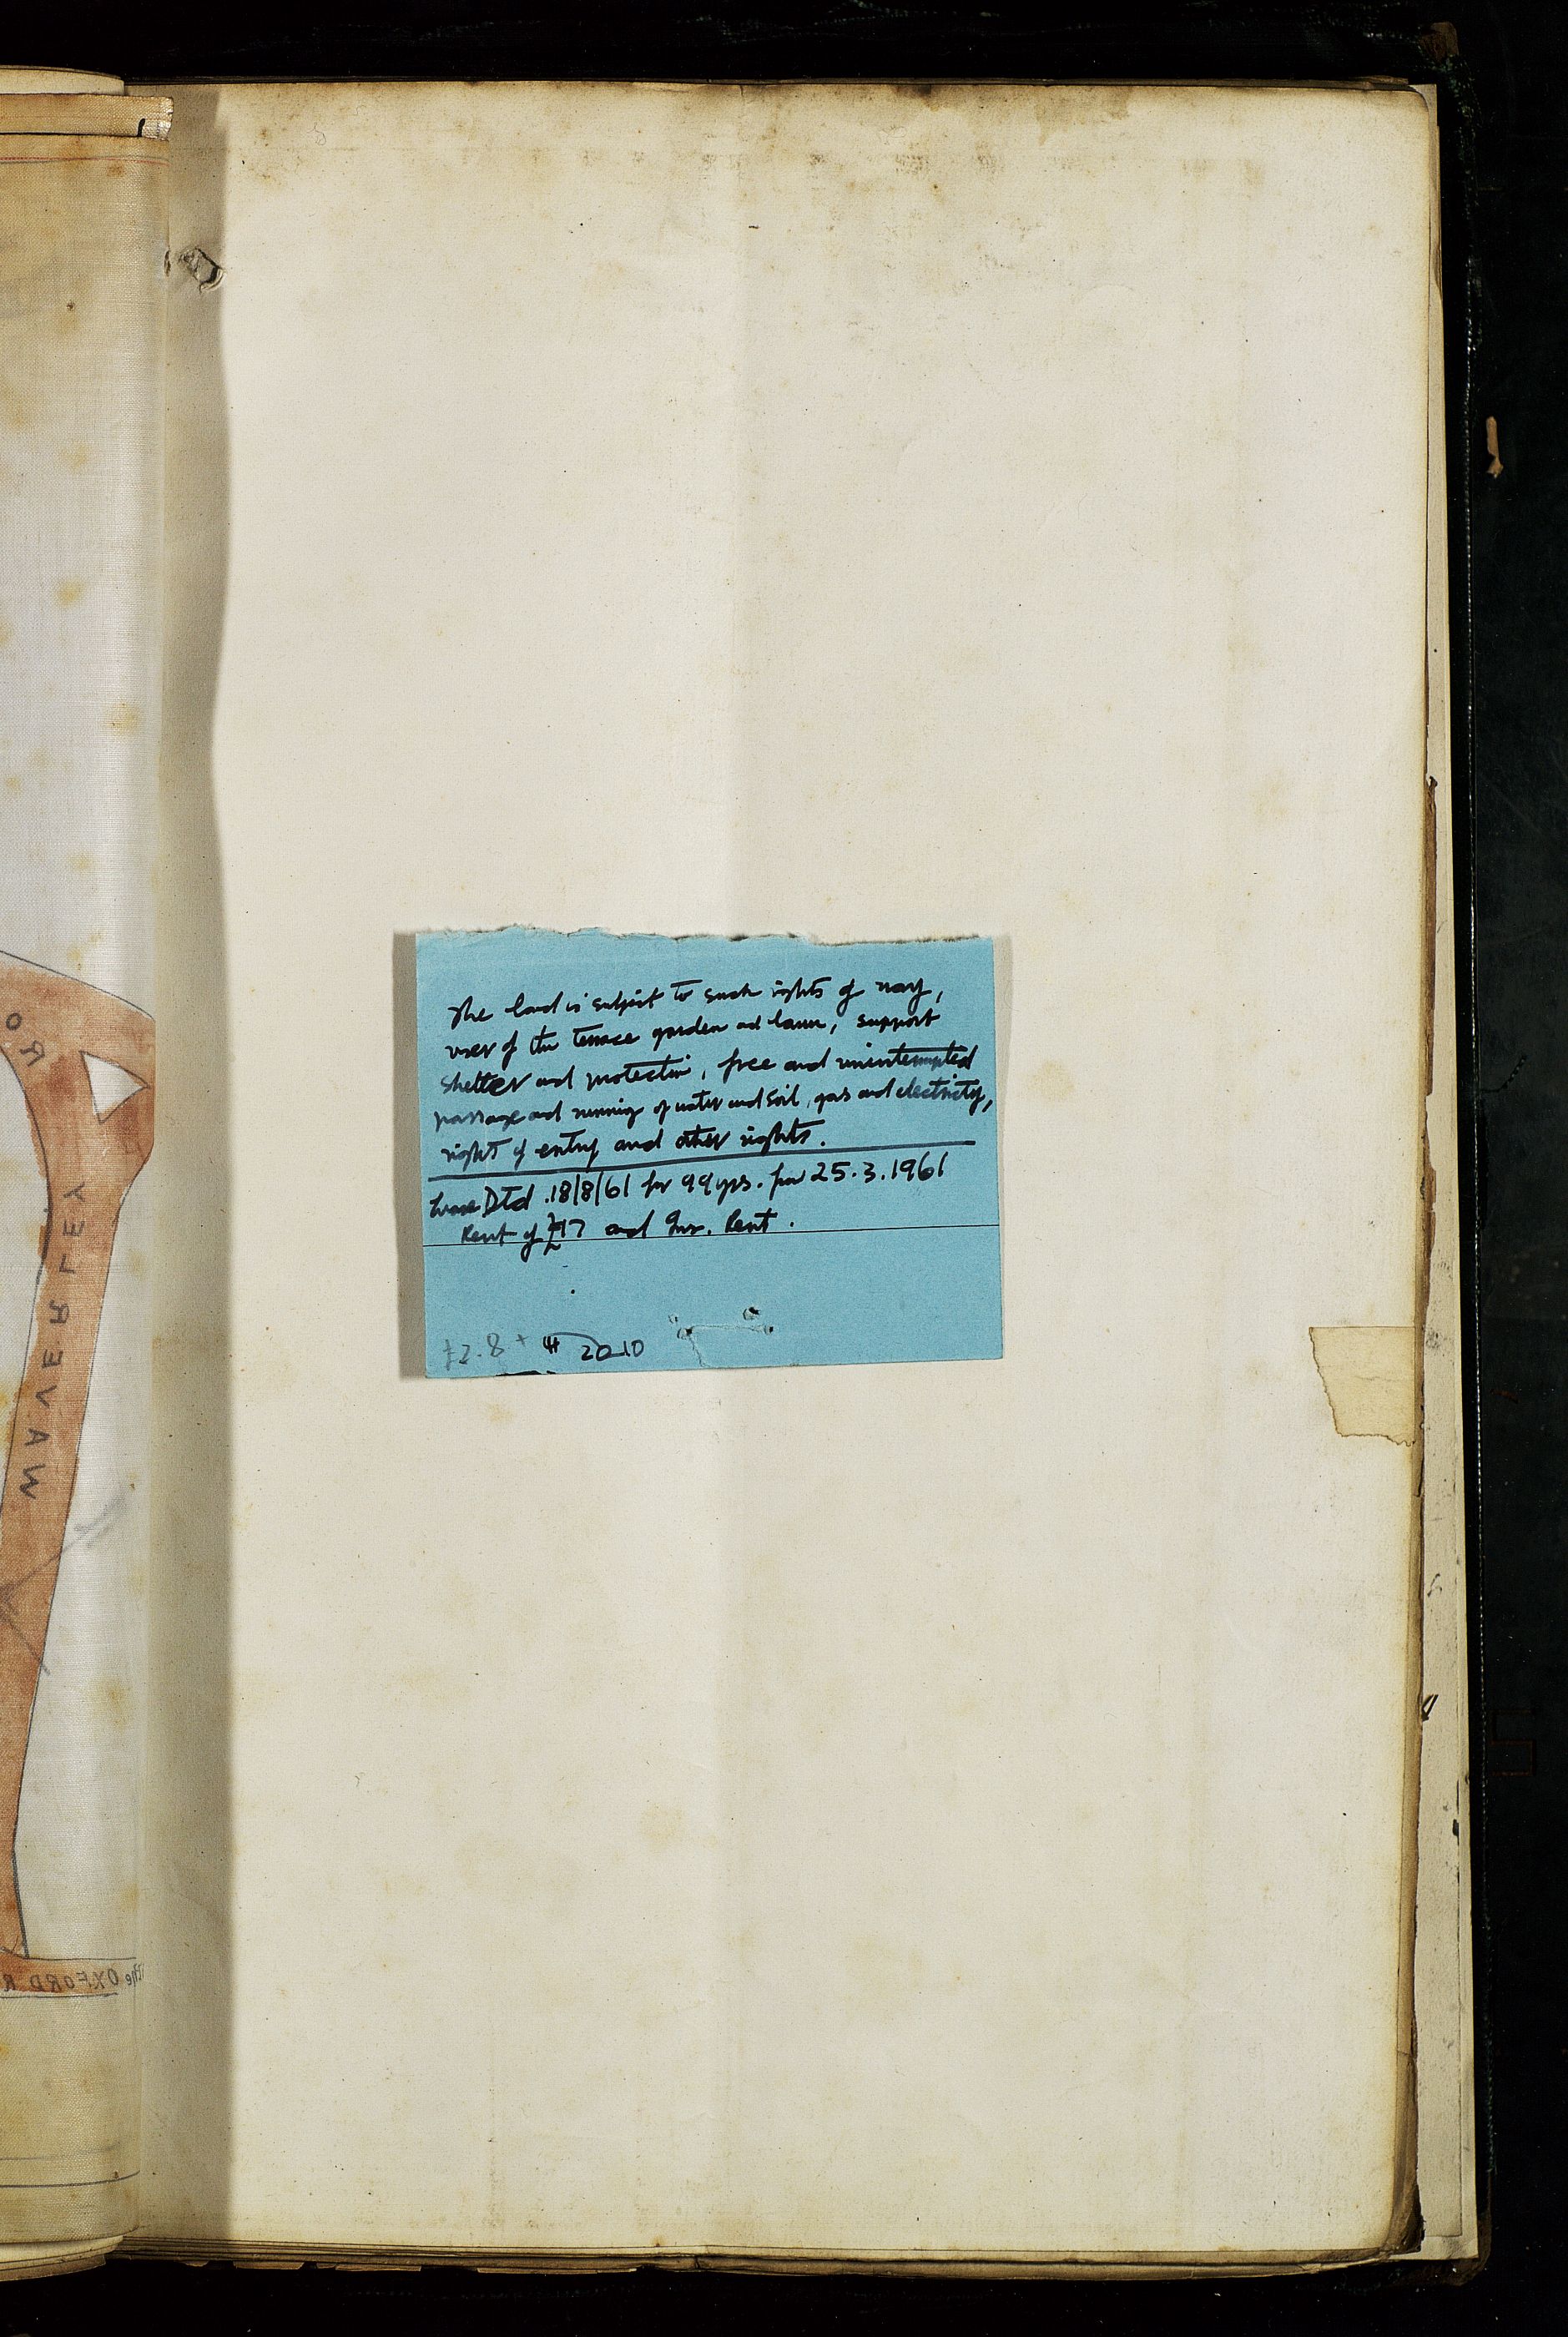 The land is subject to such rights of way,
user of the terrace garden and lawn, support
shelter and protection, free and uninterrupted
passage and running of water and soil, gas and electricity,
rights of entry and other rights.
Lease Dtd. 18/8/61 for 99 yrs. from 25.3.1961
Rent of £17 and Ins. Rent.
2010
RO
WAVERLEY
the OXFORD R